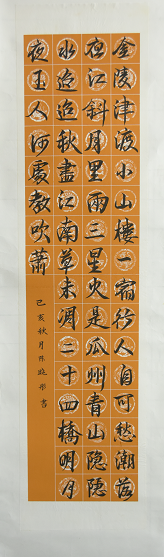 金陵津渡小山樓一宿行人自可愁潮落
夜江斜月里兩三星火是瓜州青山隱隱
水迢迢秋盡江南草未凋二十四橋明月
夜玉人何處教吹簫
己亥秋月陈書